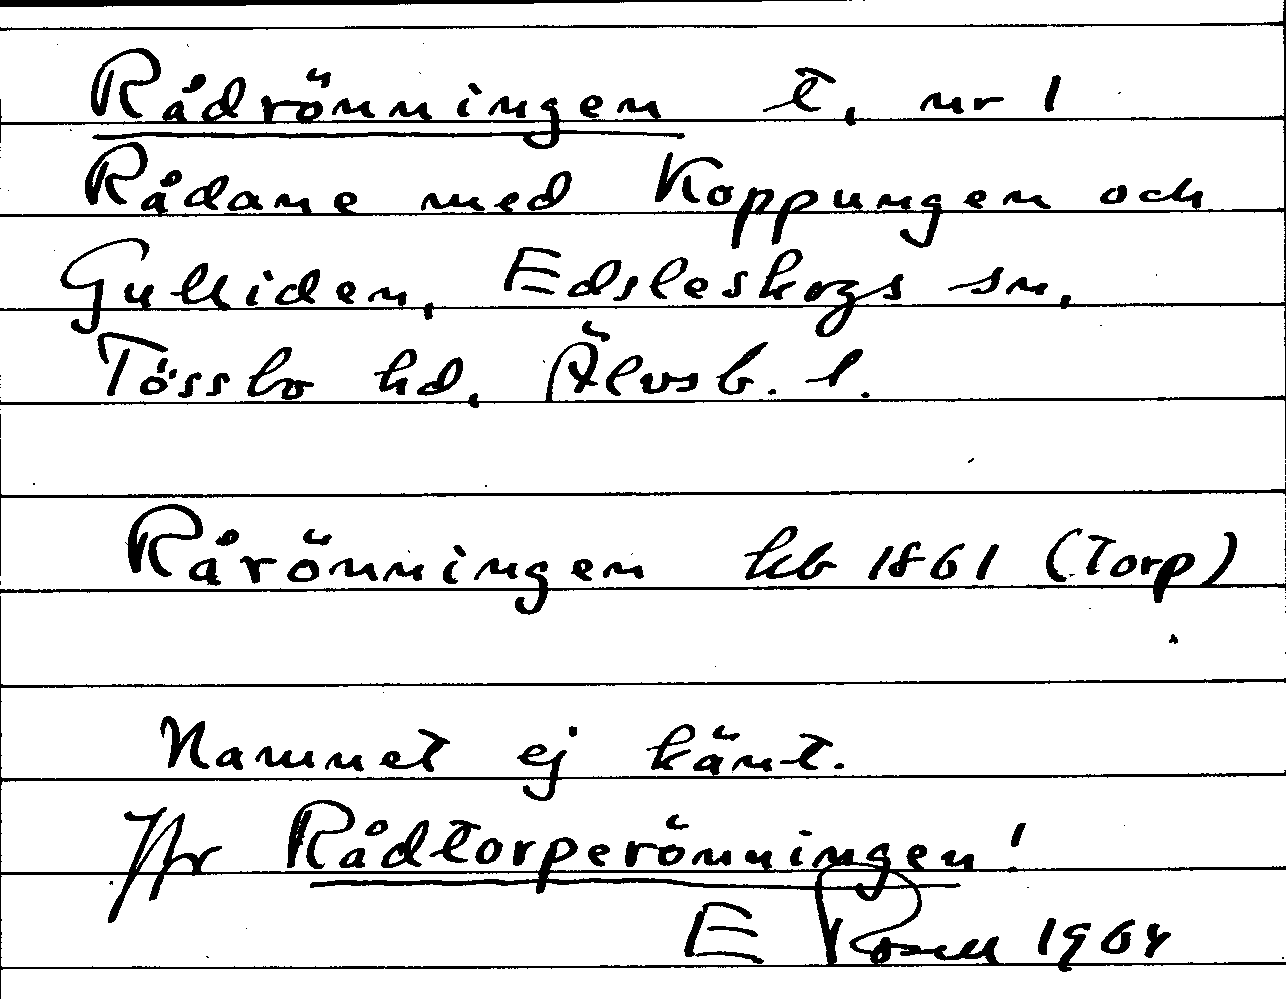 Rådrönningen t, nr 1
Rådane med Koppungen och
Gulliden, Edsleskogs sn,
Tössbo hd, Älvsb. l.
Rårönningen hb 1861 (Torp)
Namnet ej känt.
Jfr Rådtorperönningen!
E Rosell 1964